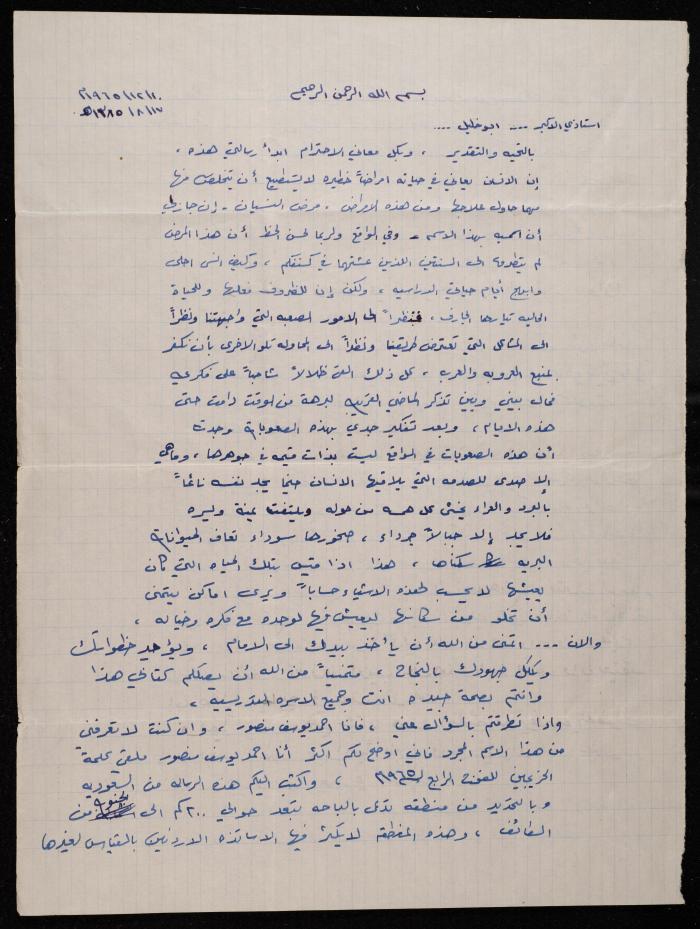 بسم الله الرحمن الرحيم
١٩٦٥/١٢/١٠م
١٣٨٥/٨/١٧هـ
استاذي الاكبر --- ابو خليل ----
بالتحيه والتقدير ، وبكل معاني الاحترام ابدأ رسالتي هذه ،
إن الانسان يعاني في حياته امراضاً خطيره لا يستطيع أن يتخلص منها
مهما حاول علاجها ومن هذه الامراض - مرض النسيان - إن جاز لي
أن اسميه بهذا الاسم - وفي الواقع ولربما لحسن الحظ أن هذا المرض
لم يتطرق الى السنتين اللذين عشتهما في كنفكم ، وكيف انسى احلى
وابهج أيام حياتي الدراسيه ، ولكن إن للظروف فعلها وللحياة
الحاليه تيارها الجارف ، فنظراً الى الامور الصعبه التي واجهتنا ونظراً
الى المشاكل التي تعترض طريقنا ونظراً الى المحاوله تلو الاخرى بأن نكفر
بمنبع العروبه والعرب ، كل ذلك القى ظلالاً شاحباً على فكري
فحال بيني وبين تذكر الماضي القريب لبرهة من الوقت دامت حتى
هذه الايام ، وبعد تفكير جدي بهذه الصعوبات وجدت
أن هذه الصعوبات في الواقع ليست بذات قيمه في جوهرها ، وما هي
إلا صدى للصدمه التي يلاقيها الانسان حينما يجد نفسه نائماً
بالبرد والعراء يخشى كل همسه من حوله ويلتفت يمنة ويسره
فلا يجد إلا جبالاً جرداء ، صخورها سوداء تعاف الحيوانات
البريه سكناها ، هذا اذا قيس بتلك الحياه التي كان
يعيشها لا يحسب لهذه الاشياء حساباً ويرى اماكن يتمنى
أن تخلو من سكانها ليعيش فيها لوحده مع فكره وخياله ،
والان --- اتمنى من الله أن يأخذ بيدك الى الامام ، ويؤ خطواتك
ويكلل جهودك بالنجاح ، متمنياً من الله أن يصلكم كتابي هذا
وانتم بصحة جيده انت وجميع الاسره التدريسيه ،
واذا تطرقتم بالسؤال عني ، فانا احمد يوسف منصور ، وان كنت لا تعرفني
من هذا الاسم المجرد فاني اوضح لكم اكثر أنا احمد يوسف منصور ملقي كلمة
الخريجين للفوج الرابع ١٩٦٥م ، واكتب اليكم هذه الرساله من السعوديه
وبالتحديد من منطقه تدعى بالباحه تبعد حوالي ٢٠٠ كم الى الجنوب من
الطائف ، وهذه المنطقه لا يكثر فيها الاساتذه الاردنين بالقياس لغيرها